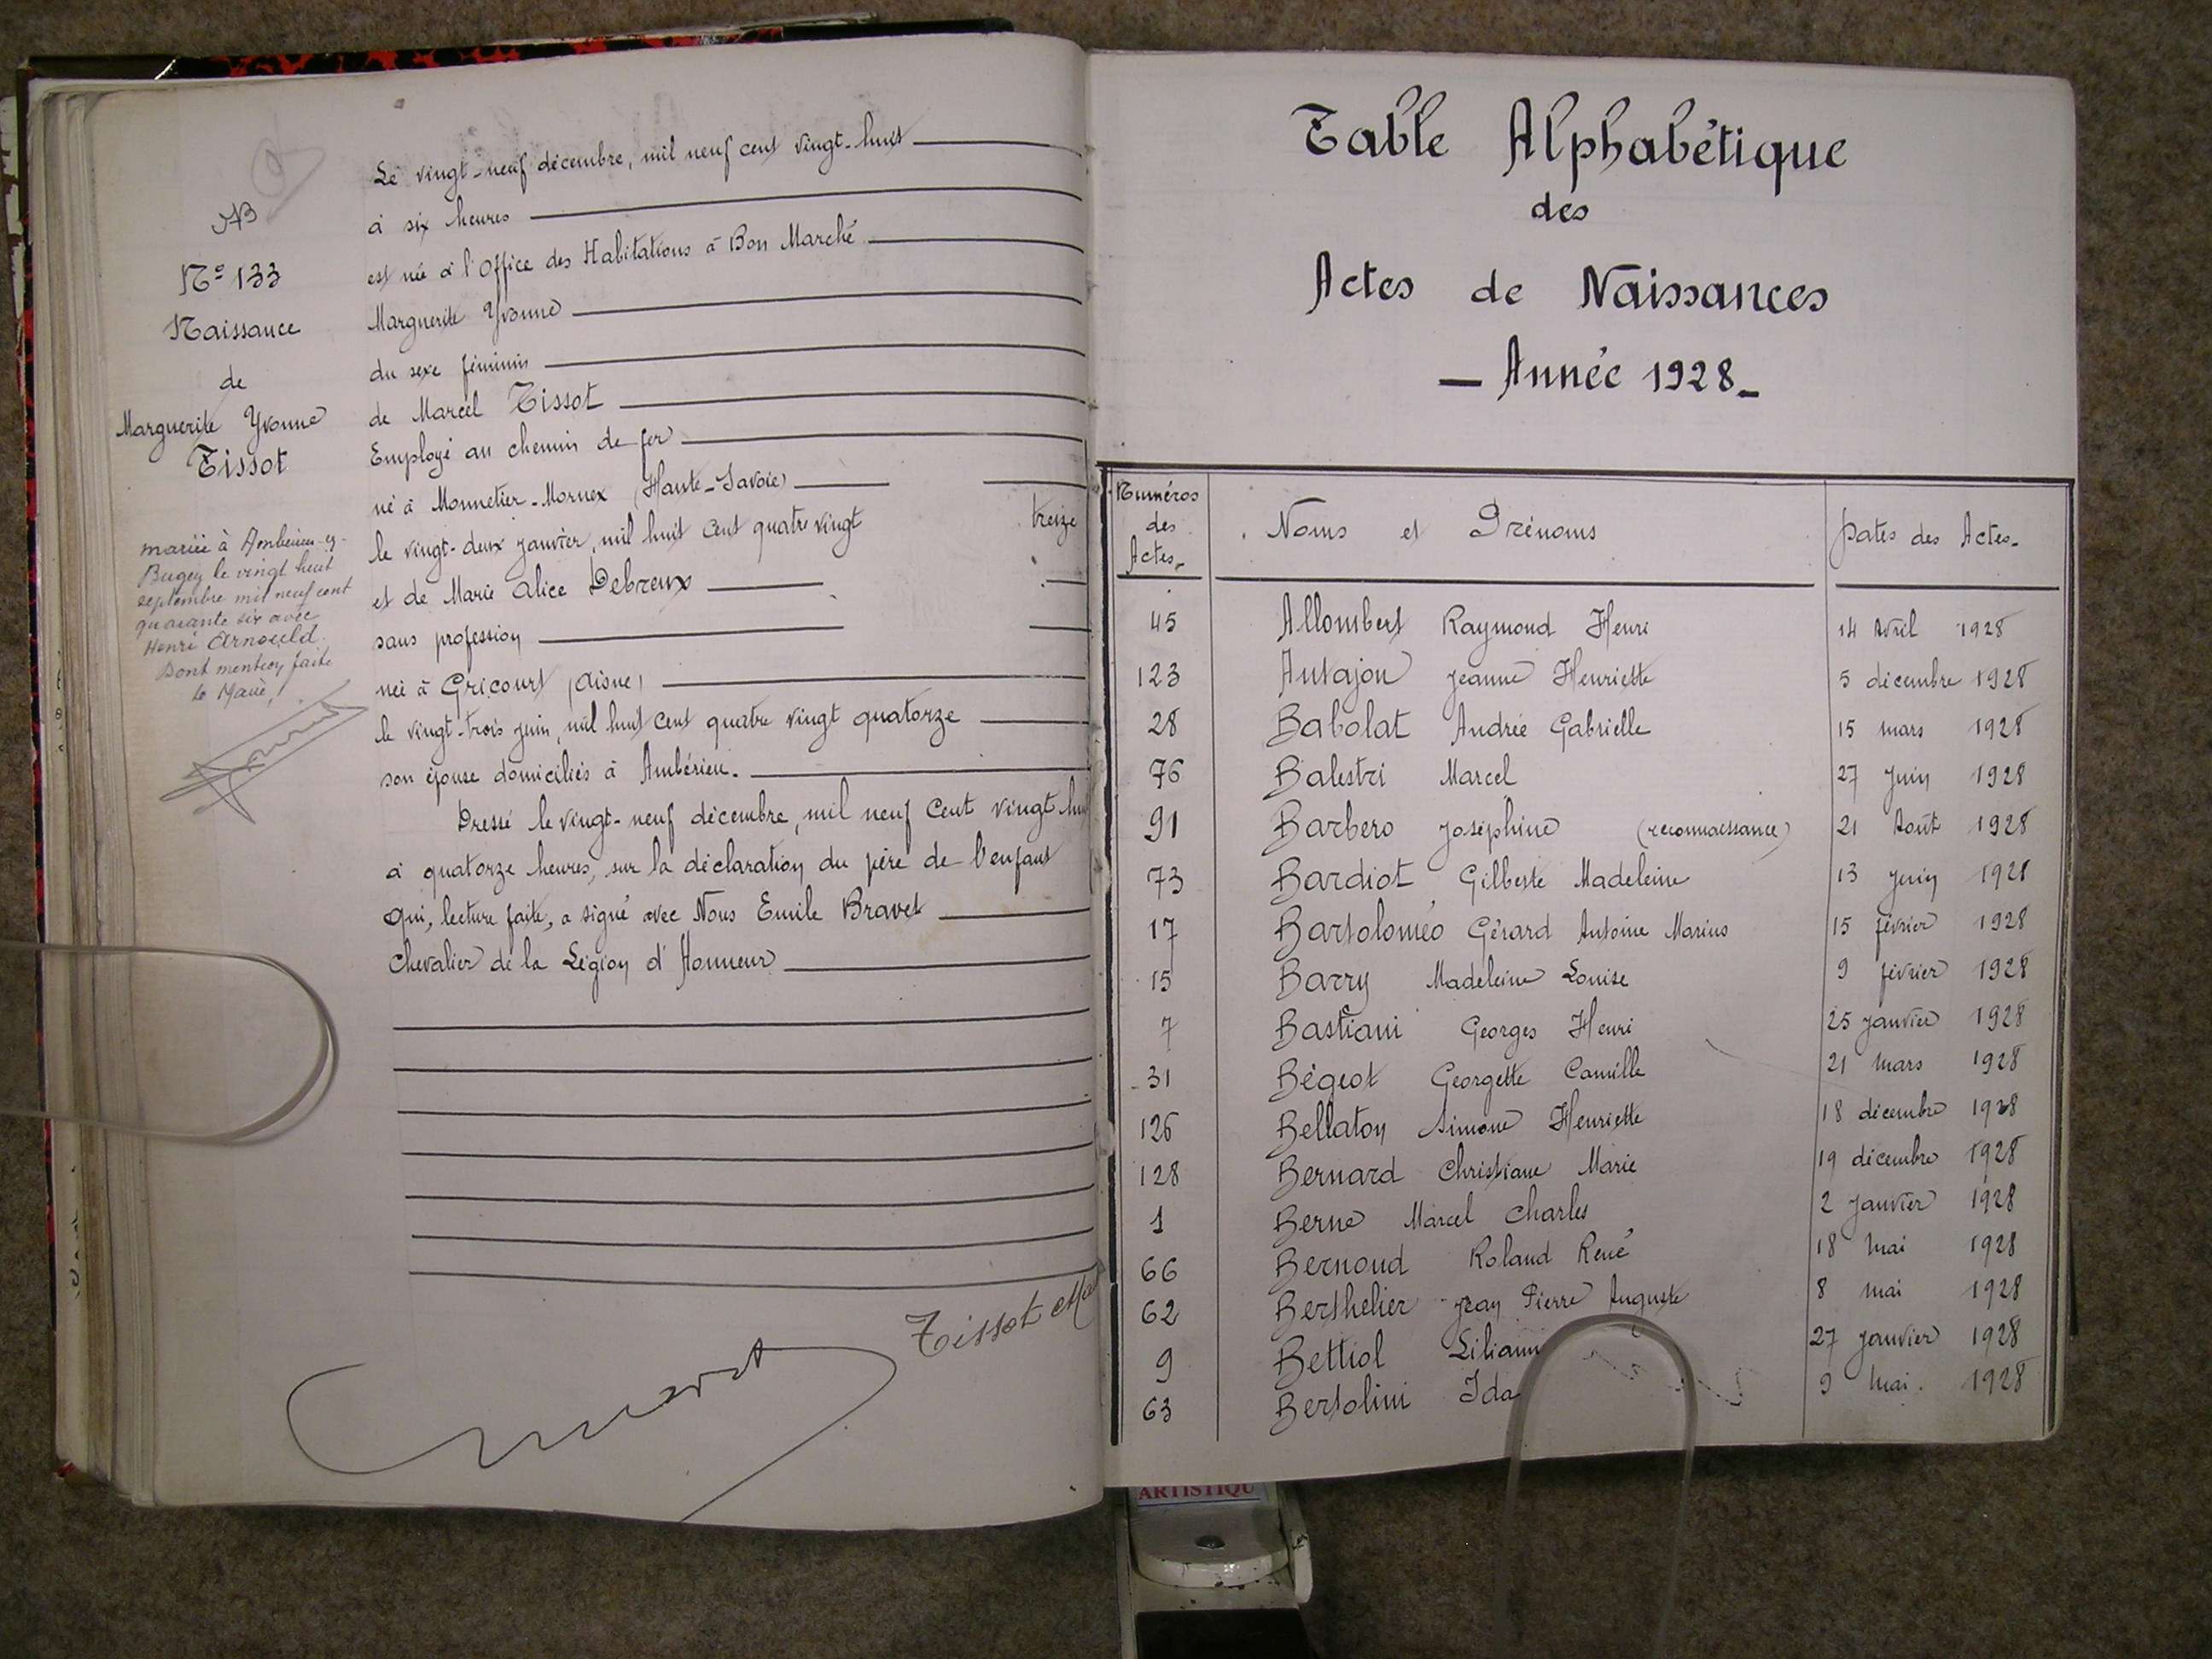 N° 133
Naissance
de
Marguerite Yvonne
Tissot
mariée à Ambérieu-en-
Bugey le vingt huit
septembre mil neuf cent
quarante six avec
Henri Arnould.
Dont mention faite
le Maire,
Le vingt-neuf décembre, mil neuf cent vingt-huit
à six heures
est née à l'Office des Habitations à Bon Marché
Marguerite Yvonne
du sexe féminin
de Marcel Tissot
Employé au chemin de fer
né à Monnetier-Mornex (Haute-Savoie)
le vingt-deux janvier, mil huit cent quatre vingt treize
et de Marie Alice Debreux
sans profession
née à Gricourt (Aisne)
le vingt-trois juin, mil huit cent quatre vingt quatorze
son épouse domiciliés à Ambérieu.
Dressé le vingt-neuf décembre, mil neuf cent vingt hu
à quatorze heures, sur la déclaration du père de l'enfant
qui, lecture faite, a signé avec Nous Emile Bravet
Chevalier de la Légion d'Honneur
Tissot
Table Alphabétique
des
Actes de Naissances
— Année 1928 -
Numéros des Actes. Noms et Prénoms Dates des Actes.
45 Allombert Raymond Henri 14 Avril 1928
123 Antajon Jeanne Henriette 5 décembre 1928
28 Babolat Andrée Gabrielle 15 mars 1928
76 Balestri Marcel 27 Juin 1928
91 Barbero Joséphine (reconnaissance) 21 Août 1928
73 Bardiot Gilberte Madeleine 13 Juin 1928
17 Bartoloméo Gérard Antoine Marius 15 février 1928
15 Barry Madeleine Louise 9 février 1928
7 Bastiani Georges Henri 25 Janvier 1928
31 Bégeot Georgette Camille 21 Mars 1928
126 Bellaton Simone Henriette 18 décembre 1928
128 Bernard Christiane Marie 19 décembre 1928
1 Berne Marcel Charles 2 Janvier 1928
66 Bernoud Roland René 18 Mai 1928
62 Berthelier Jean Pierre Auguste 8 mai 1928
9 Bettiol Liliann 27 Janvier 1928
63 Bertolini Ida 9 Mai. 1928
ARTISTIQU